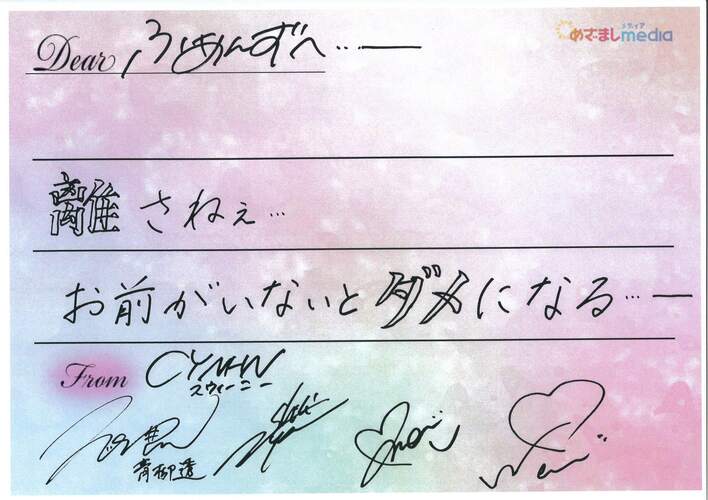 めざましmedia
メディア
Dear ふぁめんずへ…ー
離さねぇ…
お前がいないとダメになる…ー
From CYNHN
スウィーニー
青柳透